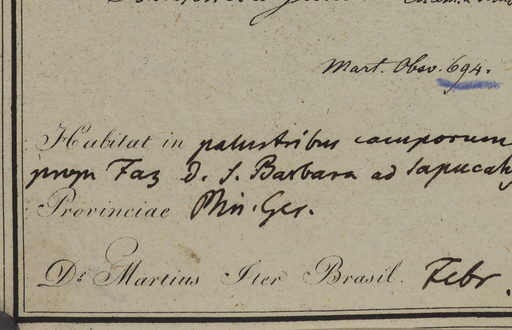 Mart. Obsv. 694.
Habitat in palustribus camporum
prope Faz D. S. Barbara ad Sapucahy
Provinciae Min. Ger.
Dr. Martius Iter Brasil. Febr.